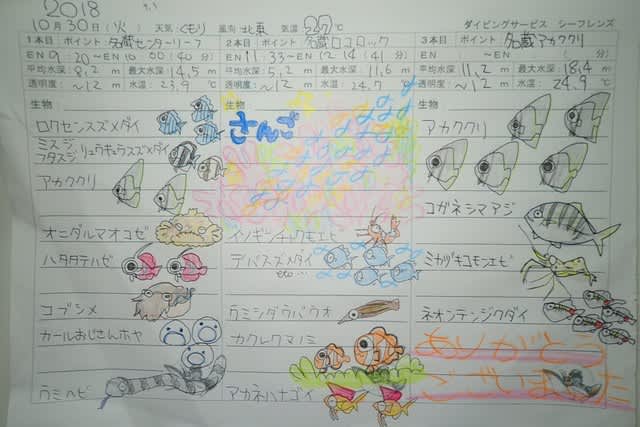 2018
10月30日(火) 天気:くもり 風向:北東 気温:27℃ ダイビングサービス シーフレンズ
1本目 ポイント 名蔵センターリーフ
EN 9:20~EN 10:00(40分)
平均水深: 8.2m 最大水深: 14.5m
透明度: ~12m 水温: 23.9℃
生物:
ロクセンスズメダイ
ミスジ
フタスジ リュウキュウスズメダイ
アカククリ
オニダルマオコゼ
ハタタテハゼ
コブシメ
カールおじさんホヤ
ウミヘビ
2本目 ポイント 名蔵ロコロック
EN 11:33~EN 12:14(41分)
平均水深: 5.2m 最大水深: 11.6m
透明度: ~12m 水温: 24.7
生物
さんご
イソギンチャクモエビ
デバスズメダイ
etc...
ウミシダウバウオ
カクレクマノミ
アカネハナゴイ
3本目 ポイント 名蔵アカククリ
EN ~EN (分)
平均水深: 11.2m 最大水深: 18.4m
透明度: ~12m 水温: 24.9℃
生物:
アカククリ
コガネシマアジ
ミカヅキコモンエビ
ネオンテンジクダイ
ありがとう
ございました